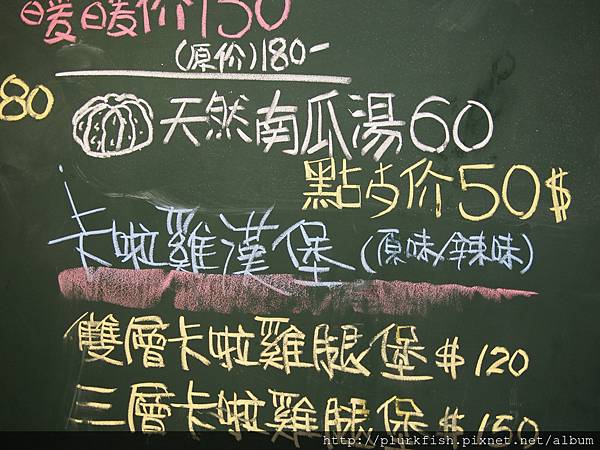 暖暖价150
(原价)180-
80
天然南瓜湯60
點心价50$
卡啦雞漢堡(原味/辣味)
雙層卡啦雞腿堡$120
三層卡啦雞腿堡$150
http://plurkfish.pixnet.net/album